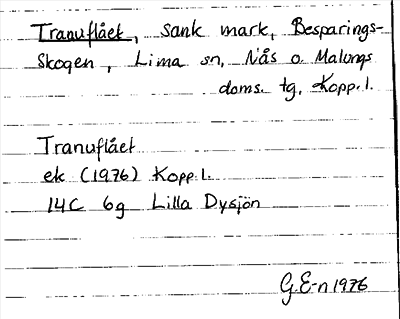 Tranuflået, sank mark, Besparings-
skogen, Lima sn, Nås o. Malungs
doms. tg, Kopp. l.
Tranuflået
ek (1976) Kopp. l.
14C 6g Lilla Dysjön
G.E-n 1976